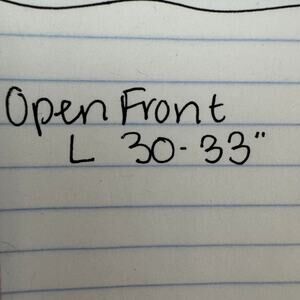 Open Front
L 30-33"